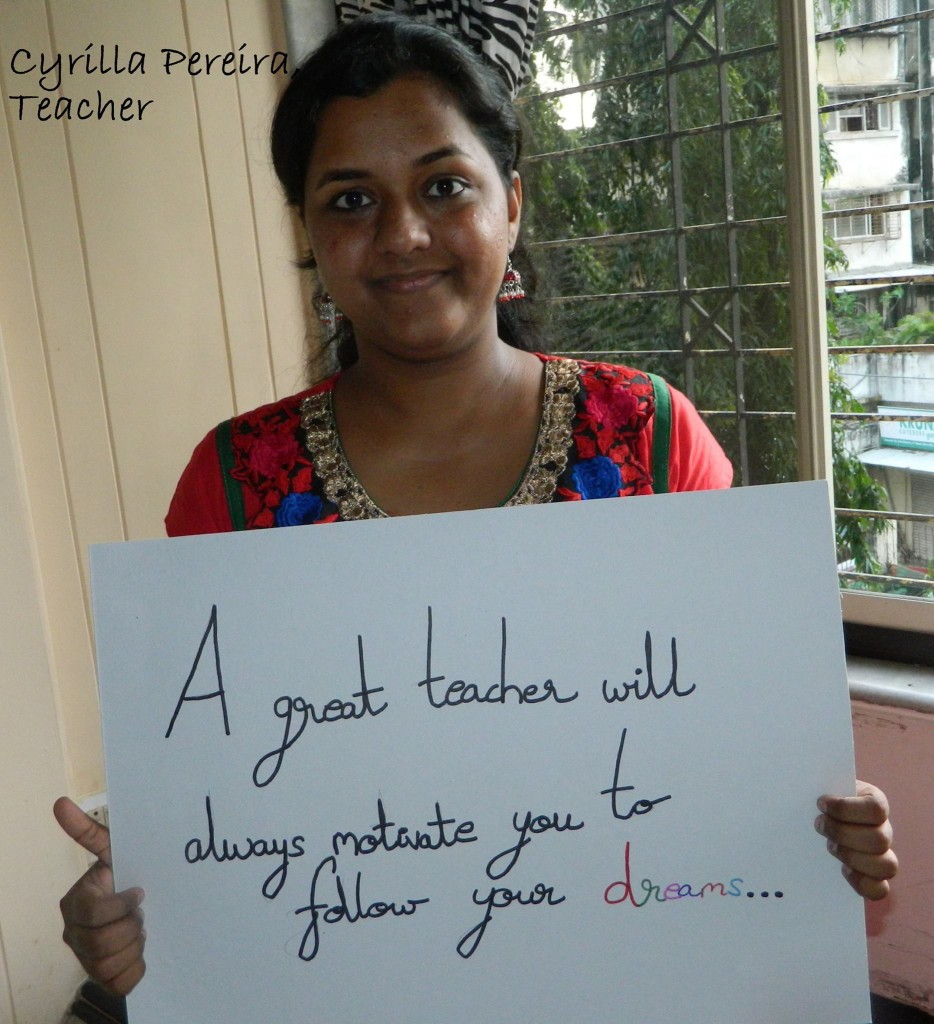 Cyrilla Pereira,
Teacher
KRUN
A great teacher will
always motivate you to
follow your dreams...